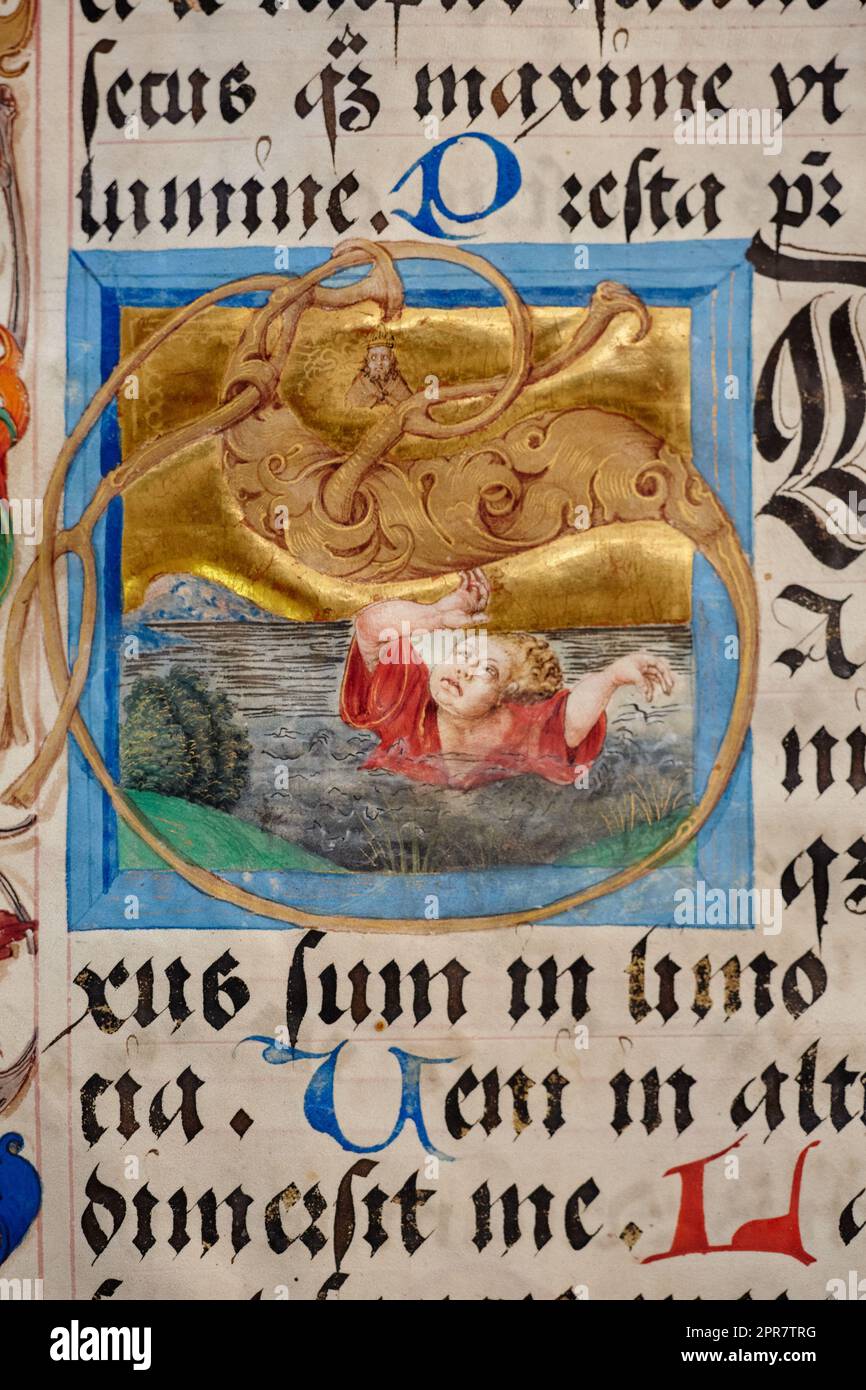 secus qʒ maxime vt
lumine. Presta pr
S
A
m
qʒ
xus sum in limo
cia. Veni in alti
dimersit me. L
alamy
Image ID: 2PR7TRG
www.alamy.com